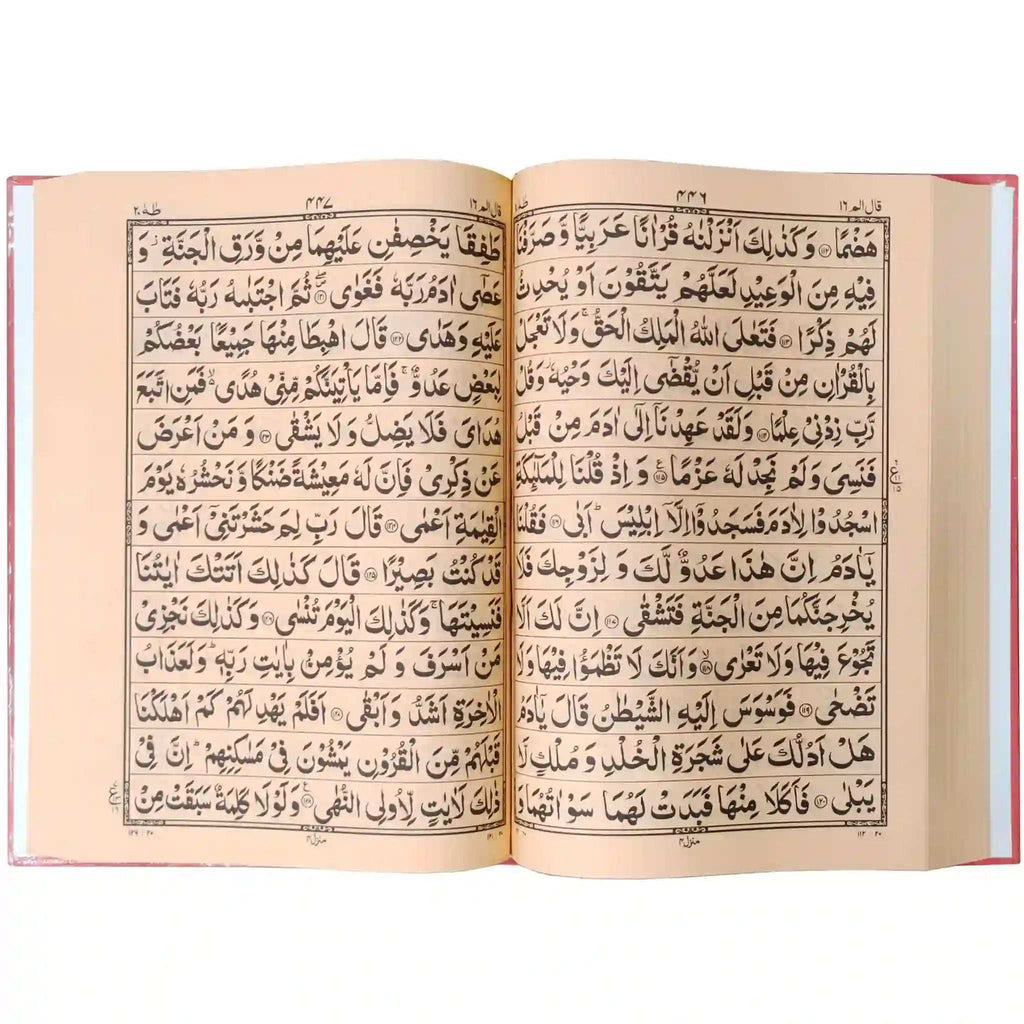 قال الم ١٦
٤٤٦
طه
هَضْمًا ﴿١١٢﴾ وَكَذٰلِكَ اَنْزَلْنٰهُ قُرْاٰنًا عَرَبِيًّا وَّ صَرَّفْنَا
فِيْهِ مِنَ الْوَعِيْدِ لَعَلَّهُمْ يَتَّقُوْنَ اَوْ يُحْدِثُ
لَهُمْ ذِكْرًا ﴿١١٣﴾ فَتَعٰلَى اللّٰهُ الْمَلِكُ الْحَقُّ ۚ وَلَا تَعْجَلْ
بِالْقُرْاٰنِ مِنْ قَبْلِ اَنْ يُّقْضٰٓى اِلَيْكَ وَحْيُهٗ ۡ وَقُلْ
رَّبِّ زِدْنِيْ عِلْمًا ﴿١١٤﴾ وَلَقَدْ عَهِدْنَآ اِلٰٓى اٰدَمَ مِنْ قَبْلُ
فَنَسِيَ وَلَمْ نَجِدْ لَهٗ عَزْمًا ﴿١١٥﴾ وَاِذْ قُلْنَا لِلْمَلٰٓئِكَةِ
اسْجُدُوْا لِاٰدَمَ فَسَجَدُوْٓا اِلَّآ اِبْلِيْسَ ؕ اَبٰى ﴿١١٦﴾ فَقُلْنَا
يٰٓاٰدَمُ اِنَّ هٰذَا عَدُوٌّ لَّكَ وَ لِزَوْجِكَ فَلَا
يُخْرِجَنَّكُمَا مِنَ الْجَنَّةِ فَتَشْقٰى ﴿١١٧﴾ اِنَّ لَكَ اَلَّا
تَجُوْعَ فِيْهَا وَلَا تَعْرٰى ﴿١١٨﴾ وَاَنَّكَ لَا تَظْمَؤُا فِيْهَا وَلَا
تَضْحٰى ﴿١١٩﴾ فَوَسْوَسَ اِلَيْهِ الشَّيْطٰنُ قَالَ يٰٓاٰدَمُ
هَلْ اَدُلُّكَ عَلٰى شَجَرَةِ الْخُلْدِ وَ مُلْكٍ لَّا
يَبْلٰى ﴿١٢٠﴾ فَاَكَلَا مِنْهَا فَبَدَتْ لَهُمَا سَوْاٰتُهُمَا وَ
٢٠ : ١١٢
منزل ٤
ع
١٥
قال الم ١٦
٤٤٧
طه ٢٠
طَفِقَا يَخْصِفٰنِ عَلَيْهِمَا مِنْ وَّرَقِ الْجَنَّةِ ۡ وَ
عَصٰٓى اٰدَمُ رَبَّهٗ فَغَوٰى ﴿١٢١﴾ ثُمَّ اجْتَبٰىهُ رَبُّهٗ فَتَابَ
عَلَيْهِ وَهَدٰى ﴿١٢٢﴾ قَالَ اهْبِطَا مِنْهَا جَمِيْعًۢا بَعْضُكُمْ
لِبَعْضٍ عَدُوٌّ ۚ فَاِمَّا يَاْتِيَنَّكُمْ مِّنِّيْ هُدًى ۙ فَمَنِ اتَّبَعَ
هُدَايَ فَلَا يَضِلُّ وَلَا يَشْقٰى ﴿١٢٣﴾ وَ مَنْ اَعْرَضَ
عَنْ ذِكْرِيْ فَاِنَّ لَهٗ مَعِيْشَةً ضَنْكًا وَّ نَحْشُرُهٗ يَوْمَ
الْقِيٰمَةِ اَعْمٰى ﴿١٢٤﴾ قَالَ رَبِّ لِمَ حَشَرْتَنِيْٓ اَعْمٰى وَ
قَدْ كُنْتُ بَصِيْرًا ﴿١٢٥﴾ قَالَ كَذٰلِكَ اَتَتْكَ اٰيٰتُنَا
فَنَسِيْتَهَا ۚ وَكَذٰلِكَ الْيَوْمَ تُنْسٰى ﴿١٢٦﴾ وَكَذٰلِكَ نَجْزِيْ
مَنْ اَسْرَفَ وَ لَمْ يُؤْمِنْۢ بِاٰيٰتِ رَبِّهٖ ؕ وَلَعَذَابُ
الْاٰخِرَةِ اَشَدُّ وَاَبْقٰى ﴿١٢٧﴾ اَفَلَمْ يَهْدِ لَهُمْ كَمْ اَهْلَكْنَا
قَبْلَهُمْ مِّنَ الْقُرُوْنِ يَمْشُوْنَ فِيْ مَسٰكِنِهِمْ ؕ اِنَّ فِيْ
ذٰلِكَ لَاٰيٰتٍ لِّاُولِى النُّهٰى ﴿١٢٨﴾ وَلَوْلَا كَلِمَةٌ سَبَقَتْ مِنْ
٢٠ : ١٢١
منزل ٤
٢٠ : ١٢٩
ع